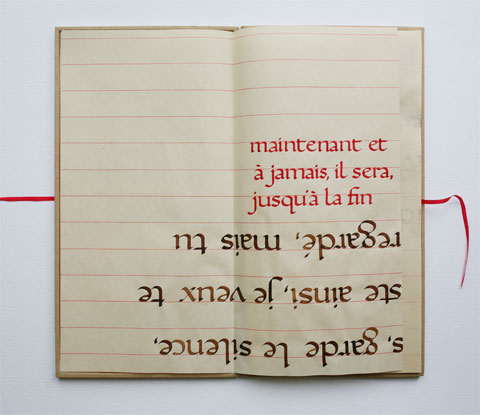 maintenant et
à jamais, il sera,
jusqu'à la fin
s, garde le silence,
ste ainsi, je veux te
regardé, mais tu